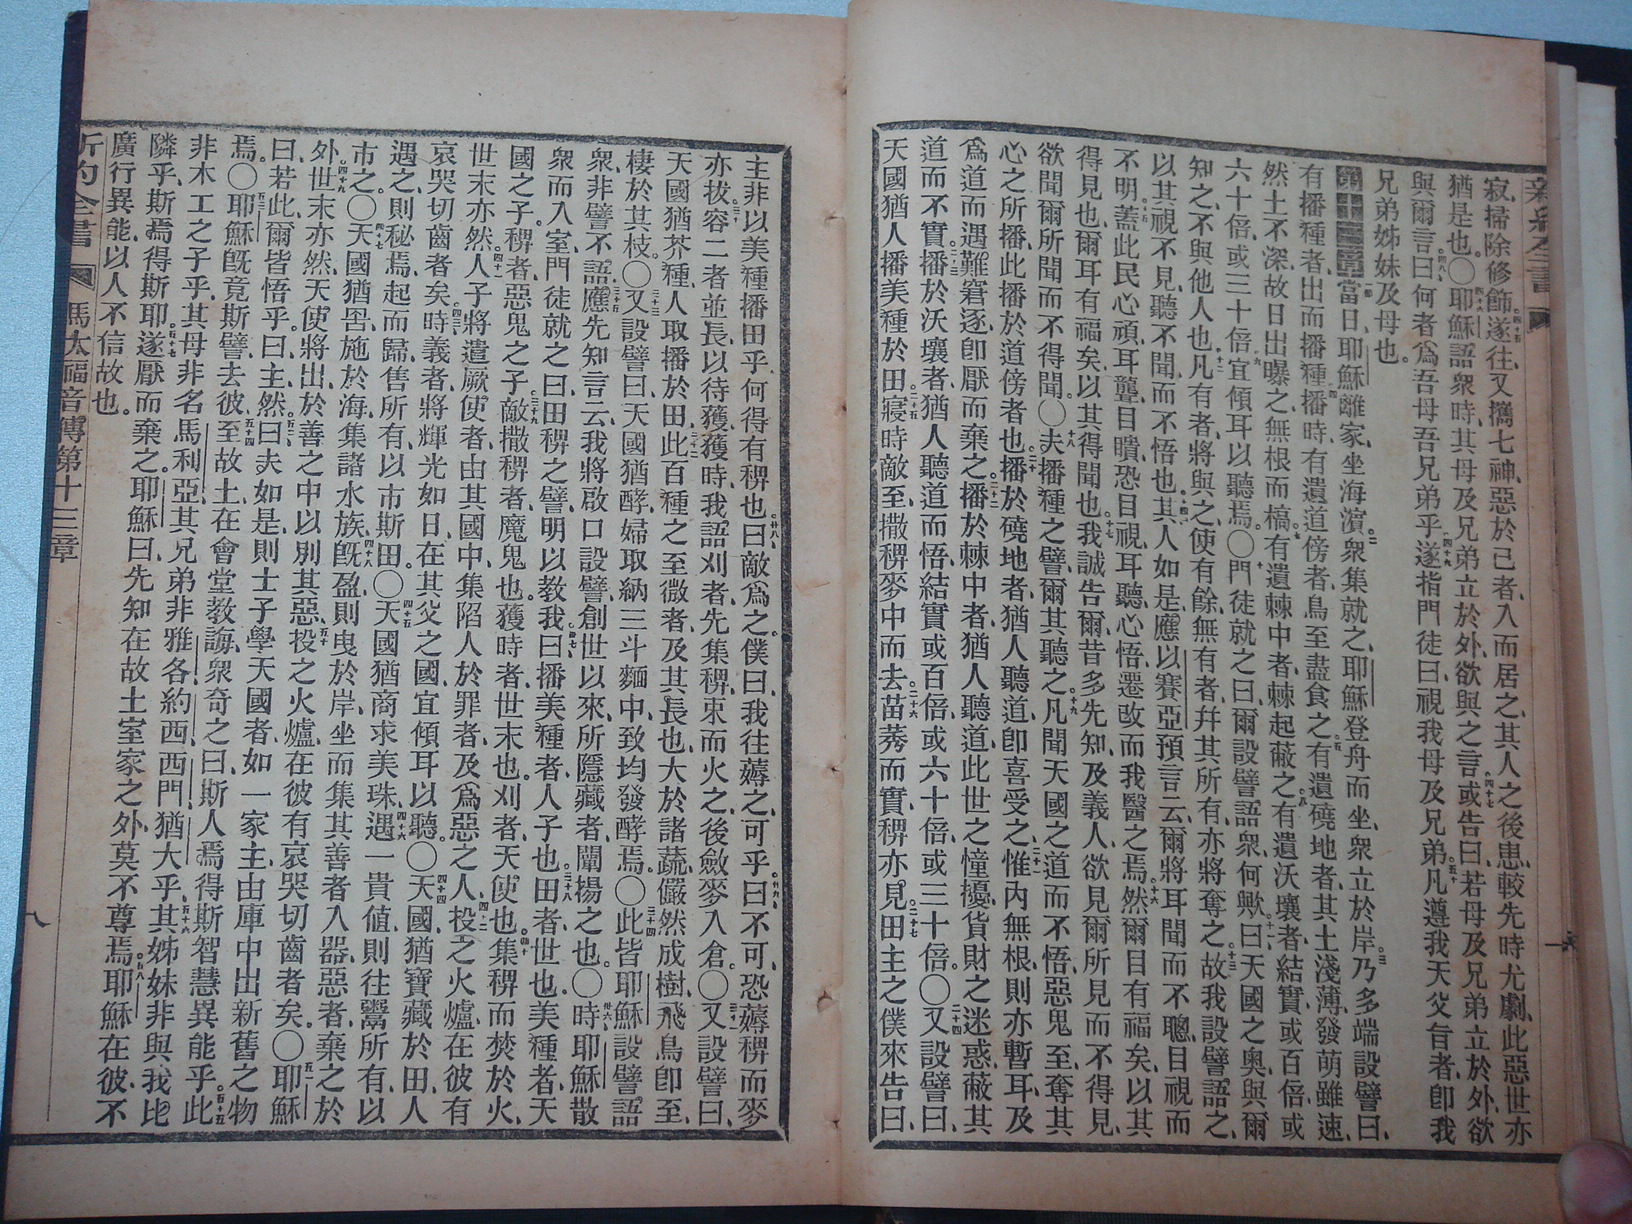 新約全書
寂、掃除修飾、四十五遂往、又攜七神、惡於己者、入而居之、其人之後患、較先時尤劇、此惡世亦
猶是也。〇四十六耶穌語衆時、其母及兄弟立於外、欲與之言、四十七或告曰、若母及兄弟立於外、欲
與爾言、四十八曰、何者爲吾母吾兄弟乎、四十九遂指門徒曰、視我母及兄弟、五十凡遵我天父旨者、卽我
兄弟姊妹及母也。
第十三章一當日、耶穌離家、坐海濱、二衆集就之、耶穌登舟而坐、衆立於岸、三乃多端設譬曰、
有播種者、出而播種、四播時有遺道傍者、鳥至盡食之、五有遺磽地者、其土淺薄、發萌雖速、
然土不深、故日出曝之、無根而槁、七有遺棘中者、棘起蔽之、八有遺沃壤者、結實、或百倍、或
六十倍、或三十倍、九宜傾耳以聽焉。〇十門徒就之曰、爾設譬語衆、何歟、十一曰、天國之奧、與爾
知之、不與他人也、十二凡有者、將與之、使有餘、無有者、幷其所有、亦將奪之、十三故我設譬語之、
以其視不見、聽不聞、而不悟也、十四其人如是、應以賽亞預言云、爾將耳聞而不聰、目視而
不明、十五蓋此民心頑、耳聾目瞶、恐目視、耳聽、心悟、遷改、而我醫之焉、十六然爾目有福矣、以其
得見也、爾耳有福矣、以其得聞也、十七我誠告爾、昔多先知、及義人、欲見爾所見、而不得見、
欲聞爾所聞、而不得聞。〇十八夫播種之譬、爾其聽之、十九凡聞天國之道而不悟、惡鬼至、奪其
心之所播、此播於道傍者也、二十播於磽地者、猶人聽道、卽喜受之、二十一惟內無根、則亦暫耳、及
爲道而遇難窘逐、卽厭而棄之、二十二播於棘中者、猶人聽道、此世之憧擾、貨財之迷惑、蔽其
道而不實、二十三播於沃壤者、猶人聽道而悟、結實或百倍、或六十倍、或三十倍。〇二十四又設譬曰、
天國猶人播美種於田、二十五寢時敵至、撒稗麥中而去、二十六苗莠而實、稗亦見、二十七田主之僕來告曰、
主非以美種播田乎、何得有稗也、廿八曰、敵爲之。僕曰、我往薅之、可乎、廿九曰、不可、恐薅稗而麥
亦拔、三十容二者並長、以待穫、穫時、我語刈者、先集稗、束而火之、後斂麥入倉。〇三十一又設譬曰、
天國猶芥種、人取播於田、三十二此百種之至微者、及其長也、大於諸蔬、儼然成樹、飛鳥卽至、
棲於其枝。〇三十三又設譬曰、天國猶酵、婦取納三斗麵中、致均發酵焉。〇三十四此皆耶穌設譬語
衆、非譬不語、三十五應先知言云、我將啟口設譬、創世以來、所隱藏者、闡揚之也。〇卅六時耶穌散
衆而入室、門徒就之曰、田稗之譬、明以教我、卅七曰、播美種者、人子也、三十八田者、世也、美種者、天
國之子、稗者、惡鬼之子、三十九敵撒稗者、魔鬼也。穫時者、世末也、刈者、天使也、四十集稗而焚於火、
世末亦然、四十一人子將遣厥使者、由其國中、集陷人於罪者、及爲惡之人、四十二投之火爐、在彼有
哀哭切齒者矣、四十三時義者、將輝光如日、在其父之國、宜傾耳以聽。〇四十四天國、猶寶藏於田、人
遇之、則秘焉、起而歸、售所有、以市斯田。〇四十五天國猶商求美珠、四十六遇一貴値、則往鬻所有、以
市之。〇四十七天國猶罟施於海、集諸水族、四十八旣盈、則曳於岸、坐而集其善者入器、惡者棄之於
外、四十九世末亦然、天使將出、於善之中以別其惡、五十投之火爐、在彼有哀哭切齒者矣。〇五一耶穌
曰、若此、爾皆悟乎。曰、主、然、五二曰、夫如是、則士子學天國者、如一家主、由庫中出新舊之物
焉。〇五三耶穌旣竟斯譬、去彼、五十四至故土、在會堂教誨、衆奇之曰、斯人焉得斯智慧異能乎、五十五此
非木工之子乎、其母非名馬利亞、其兄弟非雅各約西西門猶大乎、五十六其姊妹非與我比
隣乎、斯焉得斯耶、五十七遂厭而棄之、耶穌曰、先知在故土室家之外、莫不尊焉、五八耶穌在彼、不
廣行異能、以人不信故也。
新約全書
馬太福音傳第十三章
八